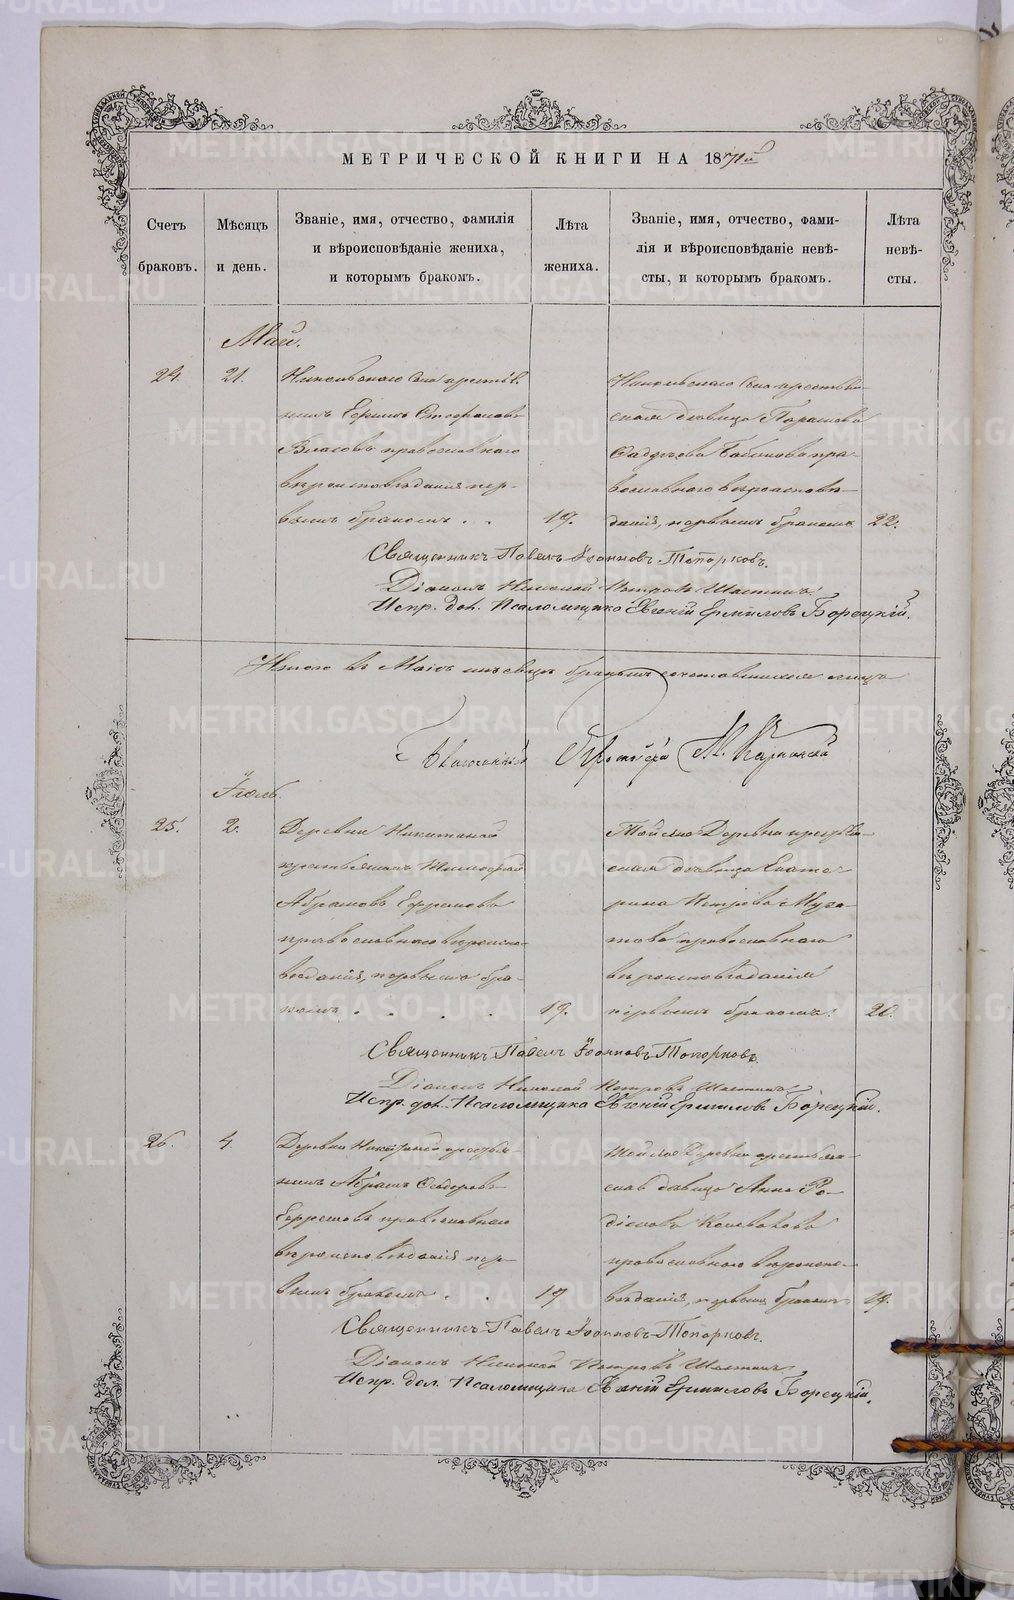 МЕТРИЧЕСКОЙ КНИГИ НА 1871й
Счетъ браковъ.
Мѣсяцъ и день.
Званіе, имя, отчество, фамилія
и вѣроисповѣданіе жениха,
и которымъ бракомъ.
Лѣта
жениха.
Званіе, имя, отчество, фами-
лія и вѣроисповѣданіе невѣ-
сты, и которымъ бракомъ.
Лѣта
невѣ-
сты.
Май.
24. 21.
Никольскаго Села крестья-
нинъ Ефимъ Стефановъ
Власовъ православнаго
вѣроисповѣданія пер-
вымъ бракомъ . . 19.
Никольскаго Села крестьян-
ская дѣвица Парасковья
Фадѣева православнаго вѣроисповѣ-
данія, первымъ бракомъ 22.
Священникъ Павелъ Іоанновъ Топорковъ.
Діаконъ Николай Петровъ
Испр. дол. Псаломщика Евгеній Ермиловъ Борецкій.
Итого въ Маѣ мѣсяцѣ бракомъ сочетавшихся
Благочинный Протоіерей
Іюль.
25. 2.
Деревни Никитиной
крестьянинъ Григорій
Абрамовъ Ефремовъ
православнаго вѣроиспо-
вѣданія, первымъ бра-
комъ . . . . 19.
Той же Деревни крестьян-
ская дѣвица Екате-
рина Петрова
православнаго
вѣроисповѣданія
первымъ бракомъ. 20.
Священникъ Павелъ Іоанновъ Топорковъ.
Діаконъ Николай Петровъ
Испр. дол. Псаломщика Евгеній Ермиловъ Борецкій.
26. 4.
Деревни Никитиной крестья-
нинъ Абрамъ Сидоровъ
Ефремовъ православнаго
вѣроисповѣданія пер-
вымъ бракомъ . . 19
Той же Деревни крестьян-
ская дѣвица Анна Ро-
діонова Коновалова
православнаго вѣроиспо-
вѣданія, первымъ бракомъ 19.
Священникъ Павелъ Іоанновъ Топорковъ.
Діаконъ Николай Петровъ
Испр. дол. Псаломщика Евгеній Ермиловъ Борецкій.
METRIKI.GASO-URAL.RU